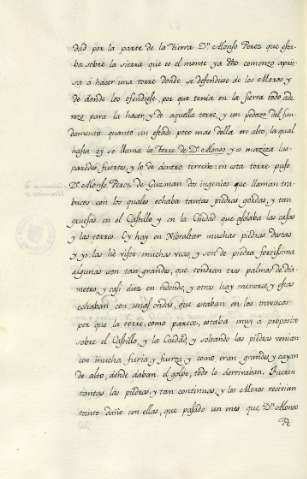 dad por la parte de la tierra Dn. Alonso Perez que esta-
ba sobre la sierra que es el monte ya dho comenzo aprie-
sa á hacer una torre donde se defendiese de los Moros y
de donde los ofendiese, por que tenia en la sierra todo ade-
rezo para la hacer, y de aquella torre, y un pedazo del fun-
damento quanto un estado poco mas della en alto, la qual
hasta oy se llama la Torre de Dn. Alonso, y su mazizo las
paredes fuertes, y lo de dentro terreño: en esta torre puso
Dn. Alonso Perez de Guzman dos ingenios que llaman tra-
bucos con los quales echaba tantas piedras gordas, y tan
gruesas en el Castillo y en la Ciudad que asolaba las casas
y las torres. Oy hay en Gibraltar muchas piedras destas
y yo las hé visto muchas veces y son de piedra fortisima
algunas son tan grandes, que tendran tres palmos de diá-
metro, y casi diez en redondo, y otras hay menores, y estas
echaban con unas ondas, que estaban en los trabucos
por que la torre, como parece, estaba muy á proposito
sobre el Castillo, y la Ciudad, y soltando las piedras venian
con mucha furia y fuerza y como eran grandes, y caian
de alto, donde daban el golpe, todo lo derribaban. Fueron
tantas las piedras, y tan continuas, y los Moros recivian
tanto daño con ellas, que pasado un mes que Dn. Alonso